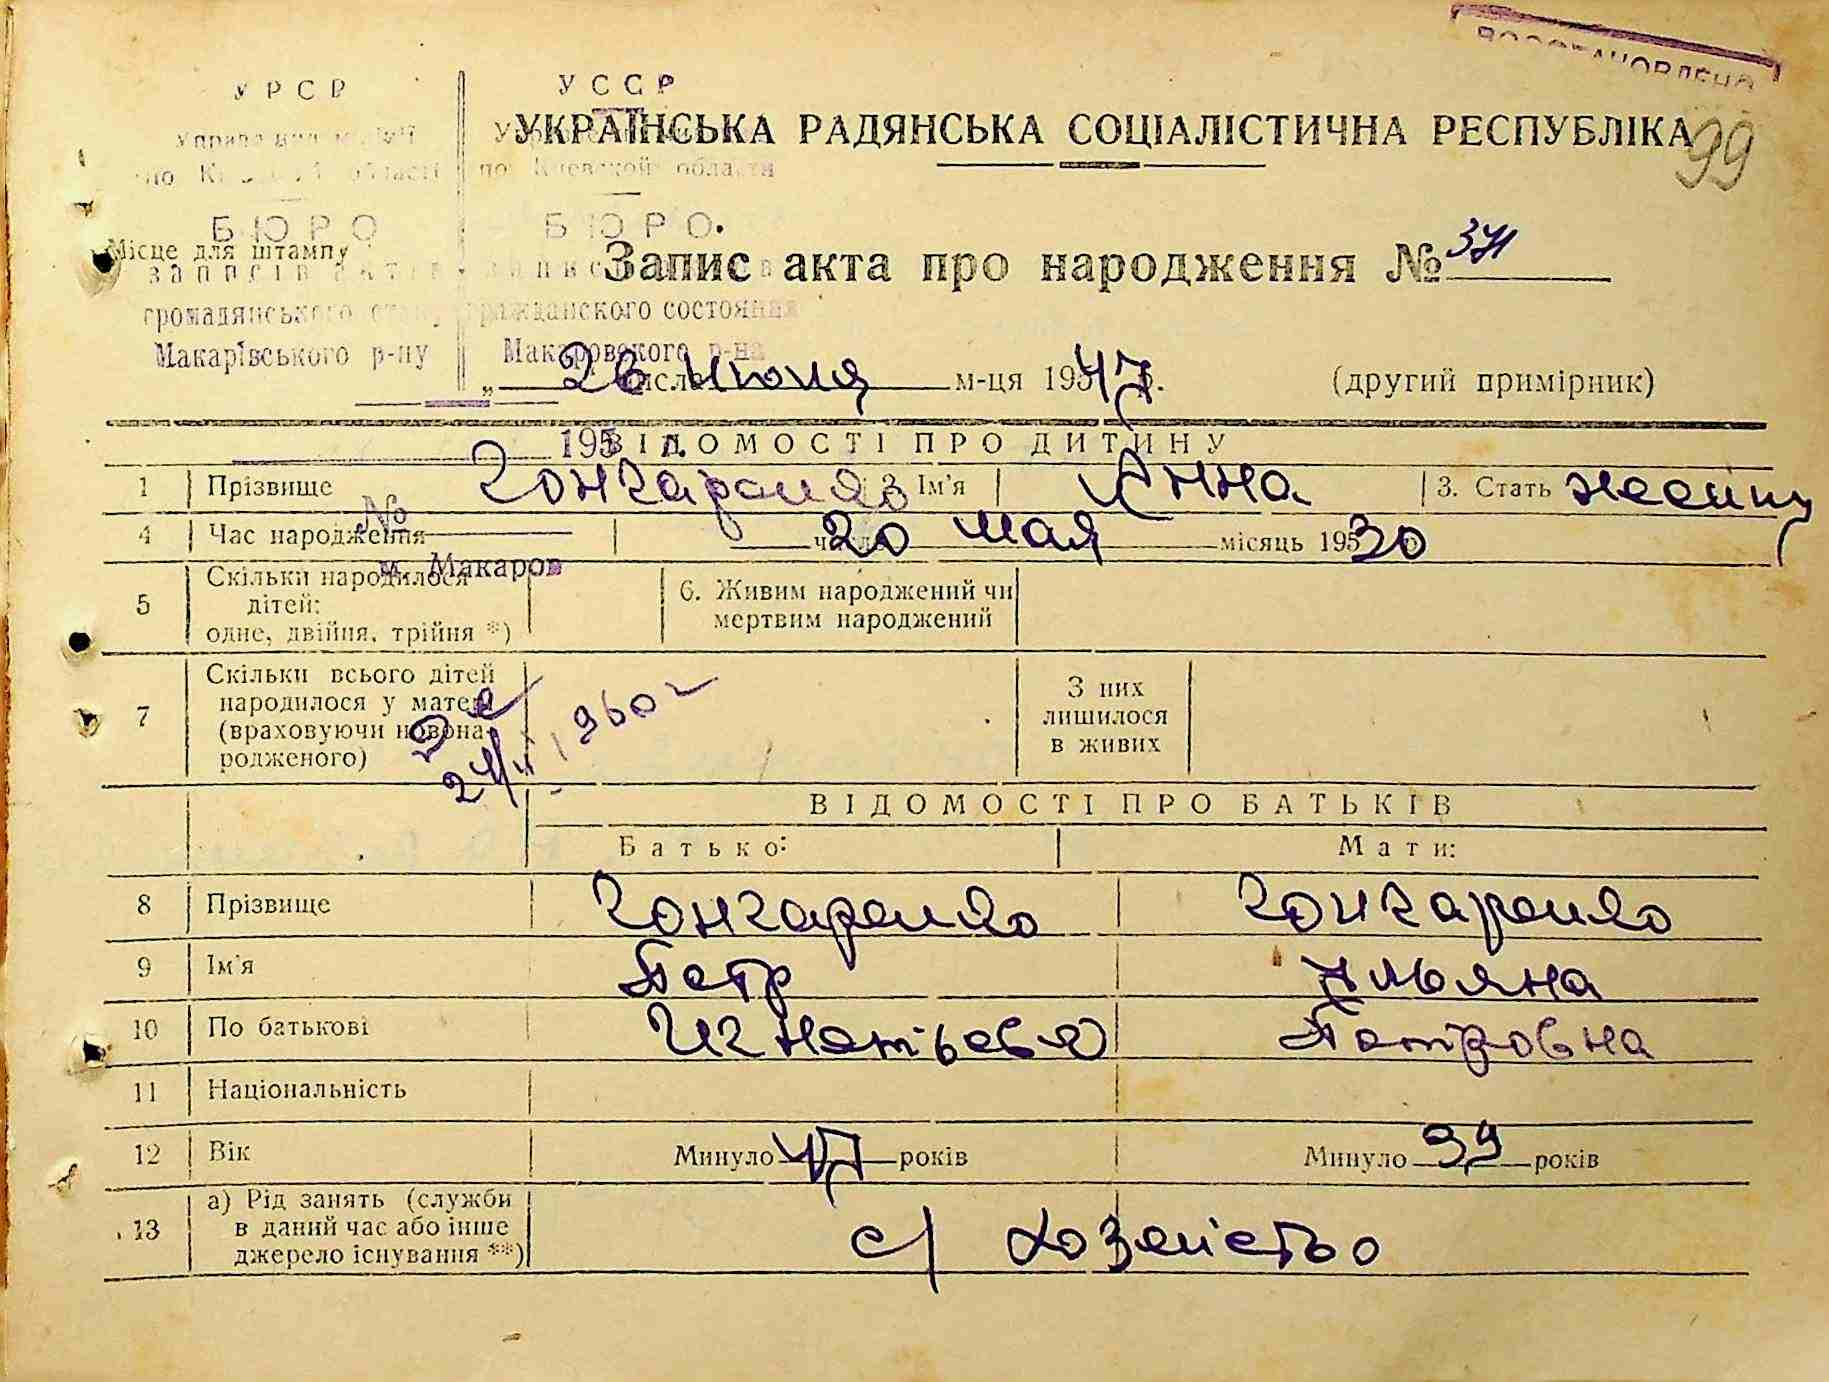 99
УРСР УССР
УКРАЇНСЬКА РАДЯНСЬКА СОЦІАЛІСТИЧНА РЕСПУБЛІКА
по Киевской области
БЮРО БЮРО
Місце для штампу
Запис акта про народження №
записів актів
громадянського стану гражданского состояния
Макарівського р-ну Макаровского р-на
„ 26 числа июня м-ця 195 47 р. (другий примірник)
195 г.
ВІДОМОСТІ ПРО ДИТИНУ
1 Прізвище Гончаренко 2. Ім'я Анна 3. Стать
№
4 Час народження 20 числа мая місяць 195 30
м. Макаров
5 Скільки народилося дітей: одне, двійня, трійня *) 6. Живим народжений чи мертвим народжений
7 Скільки всього дітей народилося у матери (враховуючи новонародженого) З них лишилося в живих
1960 г
ВІДОМОСТІ ПРО БАТЬКІВ
Батько: Мати:
8 Прізвище Гончаренко Гончаренко
9 Ім'я Петр Ульяна
10 По батькові Игнатьевич Петровна
11 Національність
12 Вік Минуло 47 років Минуло 39 років
13 а) Рід занять (служби в даний час або інше джерело існування **) с/хозяйство